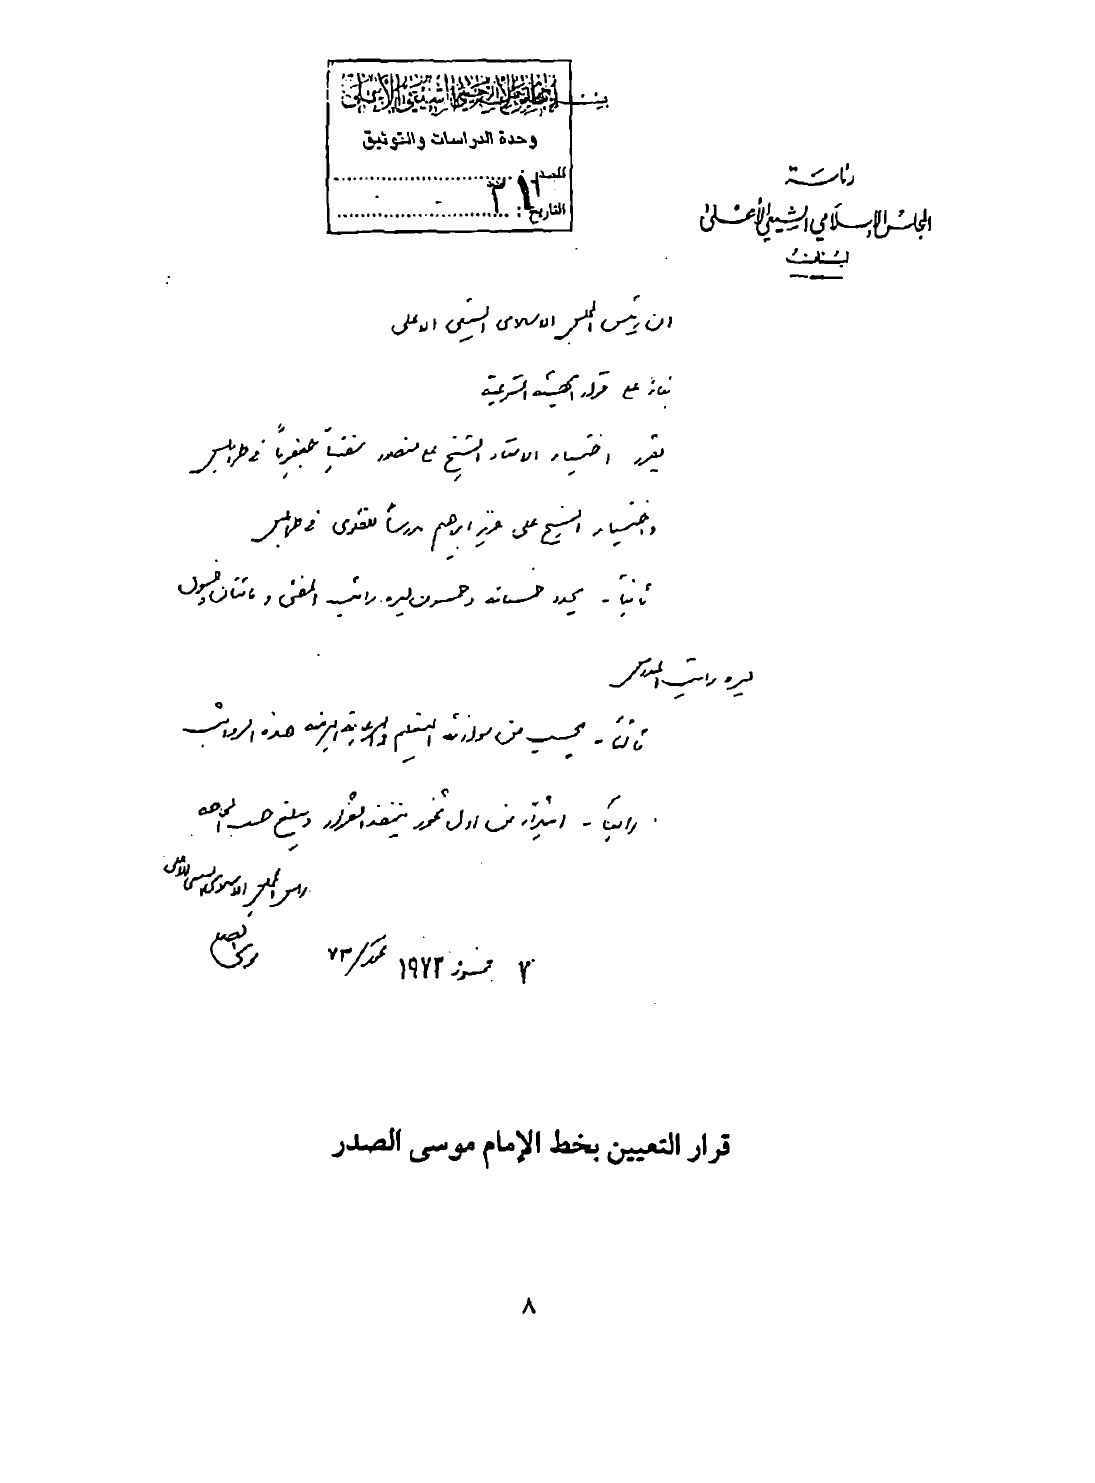 وحدة الدراسات والتوثيق
المصدر :
التاريخ :
رئاسة
المجلس الإسلامي الشيعي الأعلى
لبنان
ان رئيس المجلس الاسلامي الشيعي الاعلى
بناءً على قرار الهيئة الشرعية
يقرر اختيار الاستاذ الشيخ علي منصور مفتياً جعفرياً في طرابلس
واختيار الشيخ علي عزيز ابراهيم مدرساً للفتوى في طرابلس
ثانياً - يحدد خمسمائة وخمسون ليره راتب المفتي و مائتان وخمسون
ليره راتب المدرس
ثالثاً - يحسب من موازنة التعليم هذه الرواتب
رابعاً - ابتداء من اول تموز ينفذ القرار ويبلغ حسب
رئيس المجلس الاسلامي الشيعي الاعلى
موسى الصدر
٧ تموز ١٩٧٣ /٧٣
قرار التعيين بخط الإمام موسى الصدر
٨